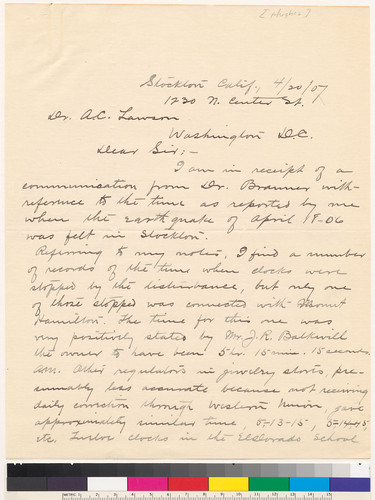 [Hughes]
Stockton Calif., 4/20/07
1230 N. Center St.
Dr. A.C. Lawson
Washington D.C.
Dear Sir:-
I am in receipt of a
communication from Dr. Branner with
reference to the time as reported by me
when the earthquake of April 18-06
was felt in Stockton.
Referring to my notes, I find a number
of records of the time when clocks were
stopped by the disturbance, but only one
of those stopped was connected with Mount
Hamilton. The time for this one was
very positively stated by Mr. J.R. Balkwill
the owner to have been 5 hr. 15 min. 15 seconds
Am. Other regulators in jewelry stores, pre-
sumably less accurate because not receiving
daily correction through Western Union, gave
approximately similar time, 5-13-15, 5-14-45,
etc. clocks in the ElDorado School